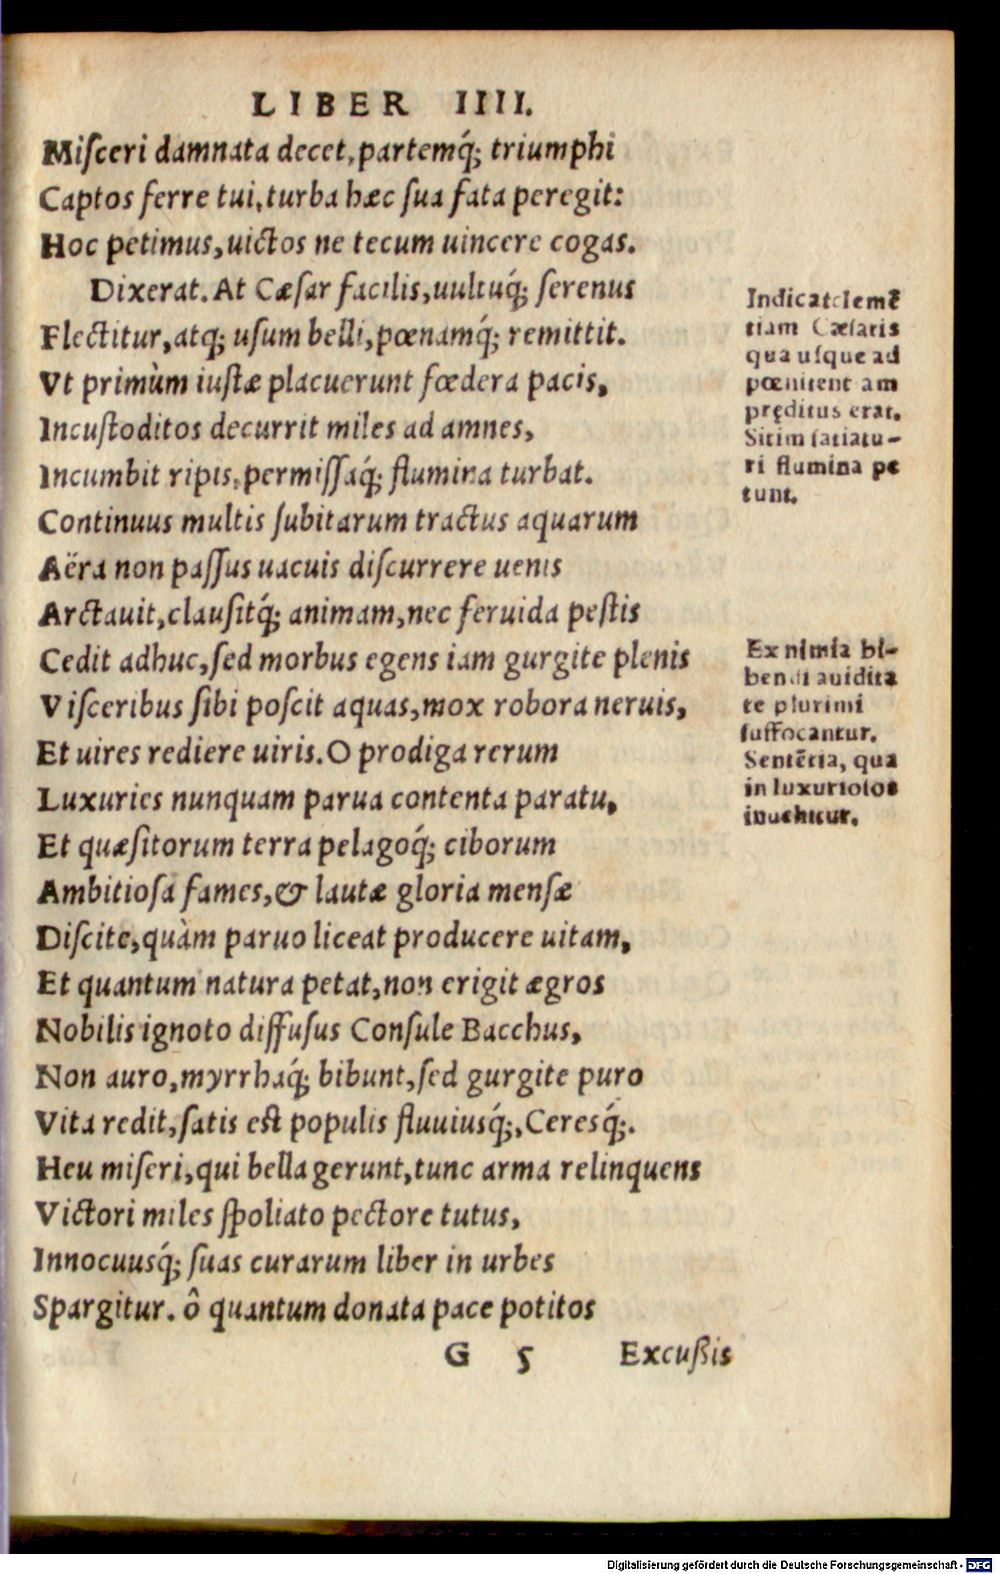 LIBER IIII.
Miſceri damnata decet, partemq́; triumphi
Captos ferre tui, turba hæc ſua fata peregit:
Hoc petimus, uictos ne tecum uincere cogas.
Dixerat. At Cæſar facilis, uultuq́; ſerenus
Flectitur, atq; uſum belli, pœnamq́; remittit.
Vt primùm iuſtæ placuerunt fœdera pacis,
Incuſtoditos decurrit miles ad amnes,
Incumbit ripis, permiſſaq́; flumina turbat.
Continuus multis ſubitarum tractus aquarum
Aëra non paſſus uacuis diſcurrere uenis
Arctauit, clauſitq́; animam, nec feruida peſtis
Cedit adhuc, ſed morbus egens iam gurgite plenis
Viſceribus ſibi poſcit aquas, mox robora neruis,
Et uires rediere uiris. O prodiga rerum
Luxuries nunquam parua contenta paratu,
Et quæſitorum terra pelagoq́; ciborum
Ambitioſa fames, & lautæ gloria menſæ
Diſcite, quàm paruo liceat producere uitam,
Et quantum natura petat, non erigit ægros
Nobilis ignoto diffuſus Conſule Bacchus,
Non auro, myrrhaq́; bibunt, ſed gurgite puro
Vita redit, ſatis eſt populis fluuiusq́;, Ceresq́;.
Heu miſeri, qui bella gerunt, tunc arma relinquens
Victori miles ſpoliato pectore tutus,
Innocuusq́; ſuas curarum liber in urbes
Spargitur. ô quantum donata pace potitos
G 5 Excuſsis
Indicat clemē
tiam Cæſaris
qua uſque ad
pœnitent am
pręditus erat.
Sitim ſatiatu-
ri flumina pe
tunt.
Ex nimia bi-
bendi auidita
te plurimi
ſuffocantur.
Sentētia, qua
in luxurioſos
inuehitur.
Digitalisierung gefördert durch die Deutsche Forschungsgemeinschaft - DFG